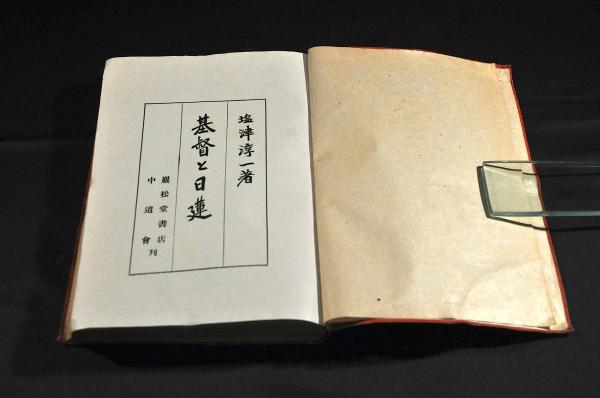 塩津淳一著
基督と日蓮
巌松堂書店
中道會刊